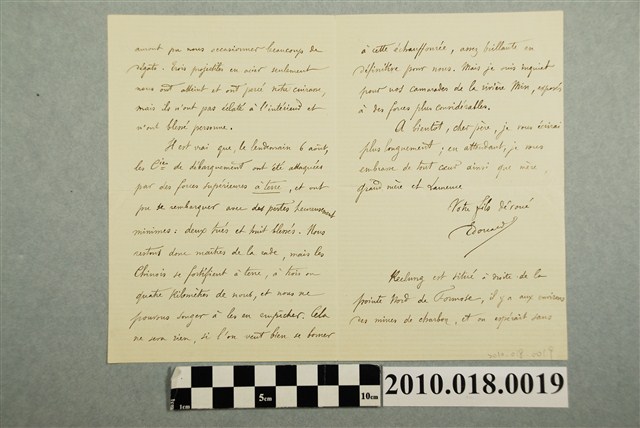 auront pu nous occasionner beaucoup de
dégâts. Trois projectiles en acier seulement
nous ont atteint et ont percé notre cuirasse,
mais ils n'ont pas éclaté à l'intérieur et
n'ont blessé personne.
Il est vrai que, le lendemain 6 août,
les Cies de débarquement ont été attaquées
par des forces supérieures à terre, et ont
pu se rembarquer avec des pertes heureusement
minimes : deux tués et huit blessés. Nous
restons donc maîtres de la rade, mais les
Chinois se fortifient à terre, à trois ou
quatre kilomètres de nous, et nous ne
pouvons songer à les en empêcher. Cela
ne sera rien, si l'on veut bien se borner
à cette échauffourée, assez brillante en
définitive pour nous. Mais je suis inquiet
pour nos camarades de la rivière Min, exposés
à des forces plus considérables.
A bientôt, cher père, je vous écrirai
plus longuement ; en attendant, je vous
embrasse de tout cœur ainsi que mère,
grand'mère et
Votre fils dévoué
Edouard
Keelung est situé à droite de la
pointe Nord de Formose, il y a aux environs
des mines de charbon, et on espérait sans
2010.018.0019
1cm
5cm
10cm
2010.018.0019